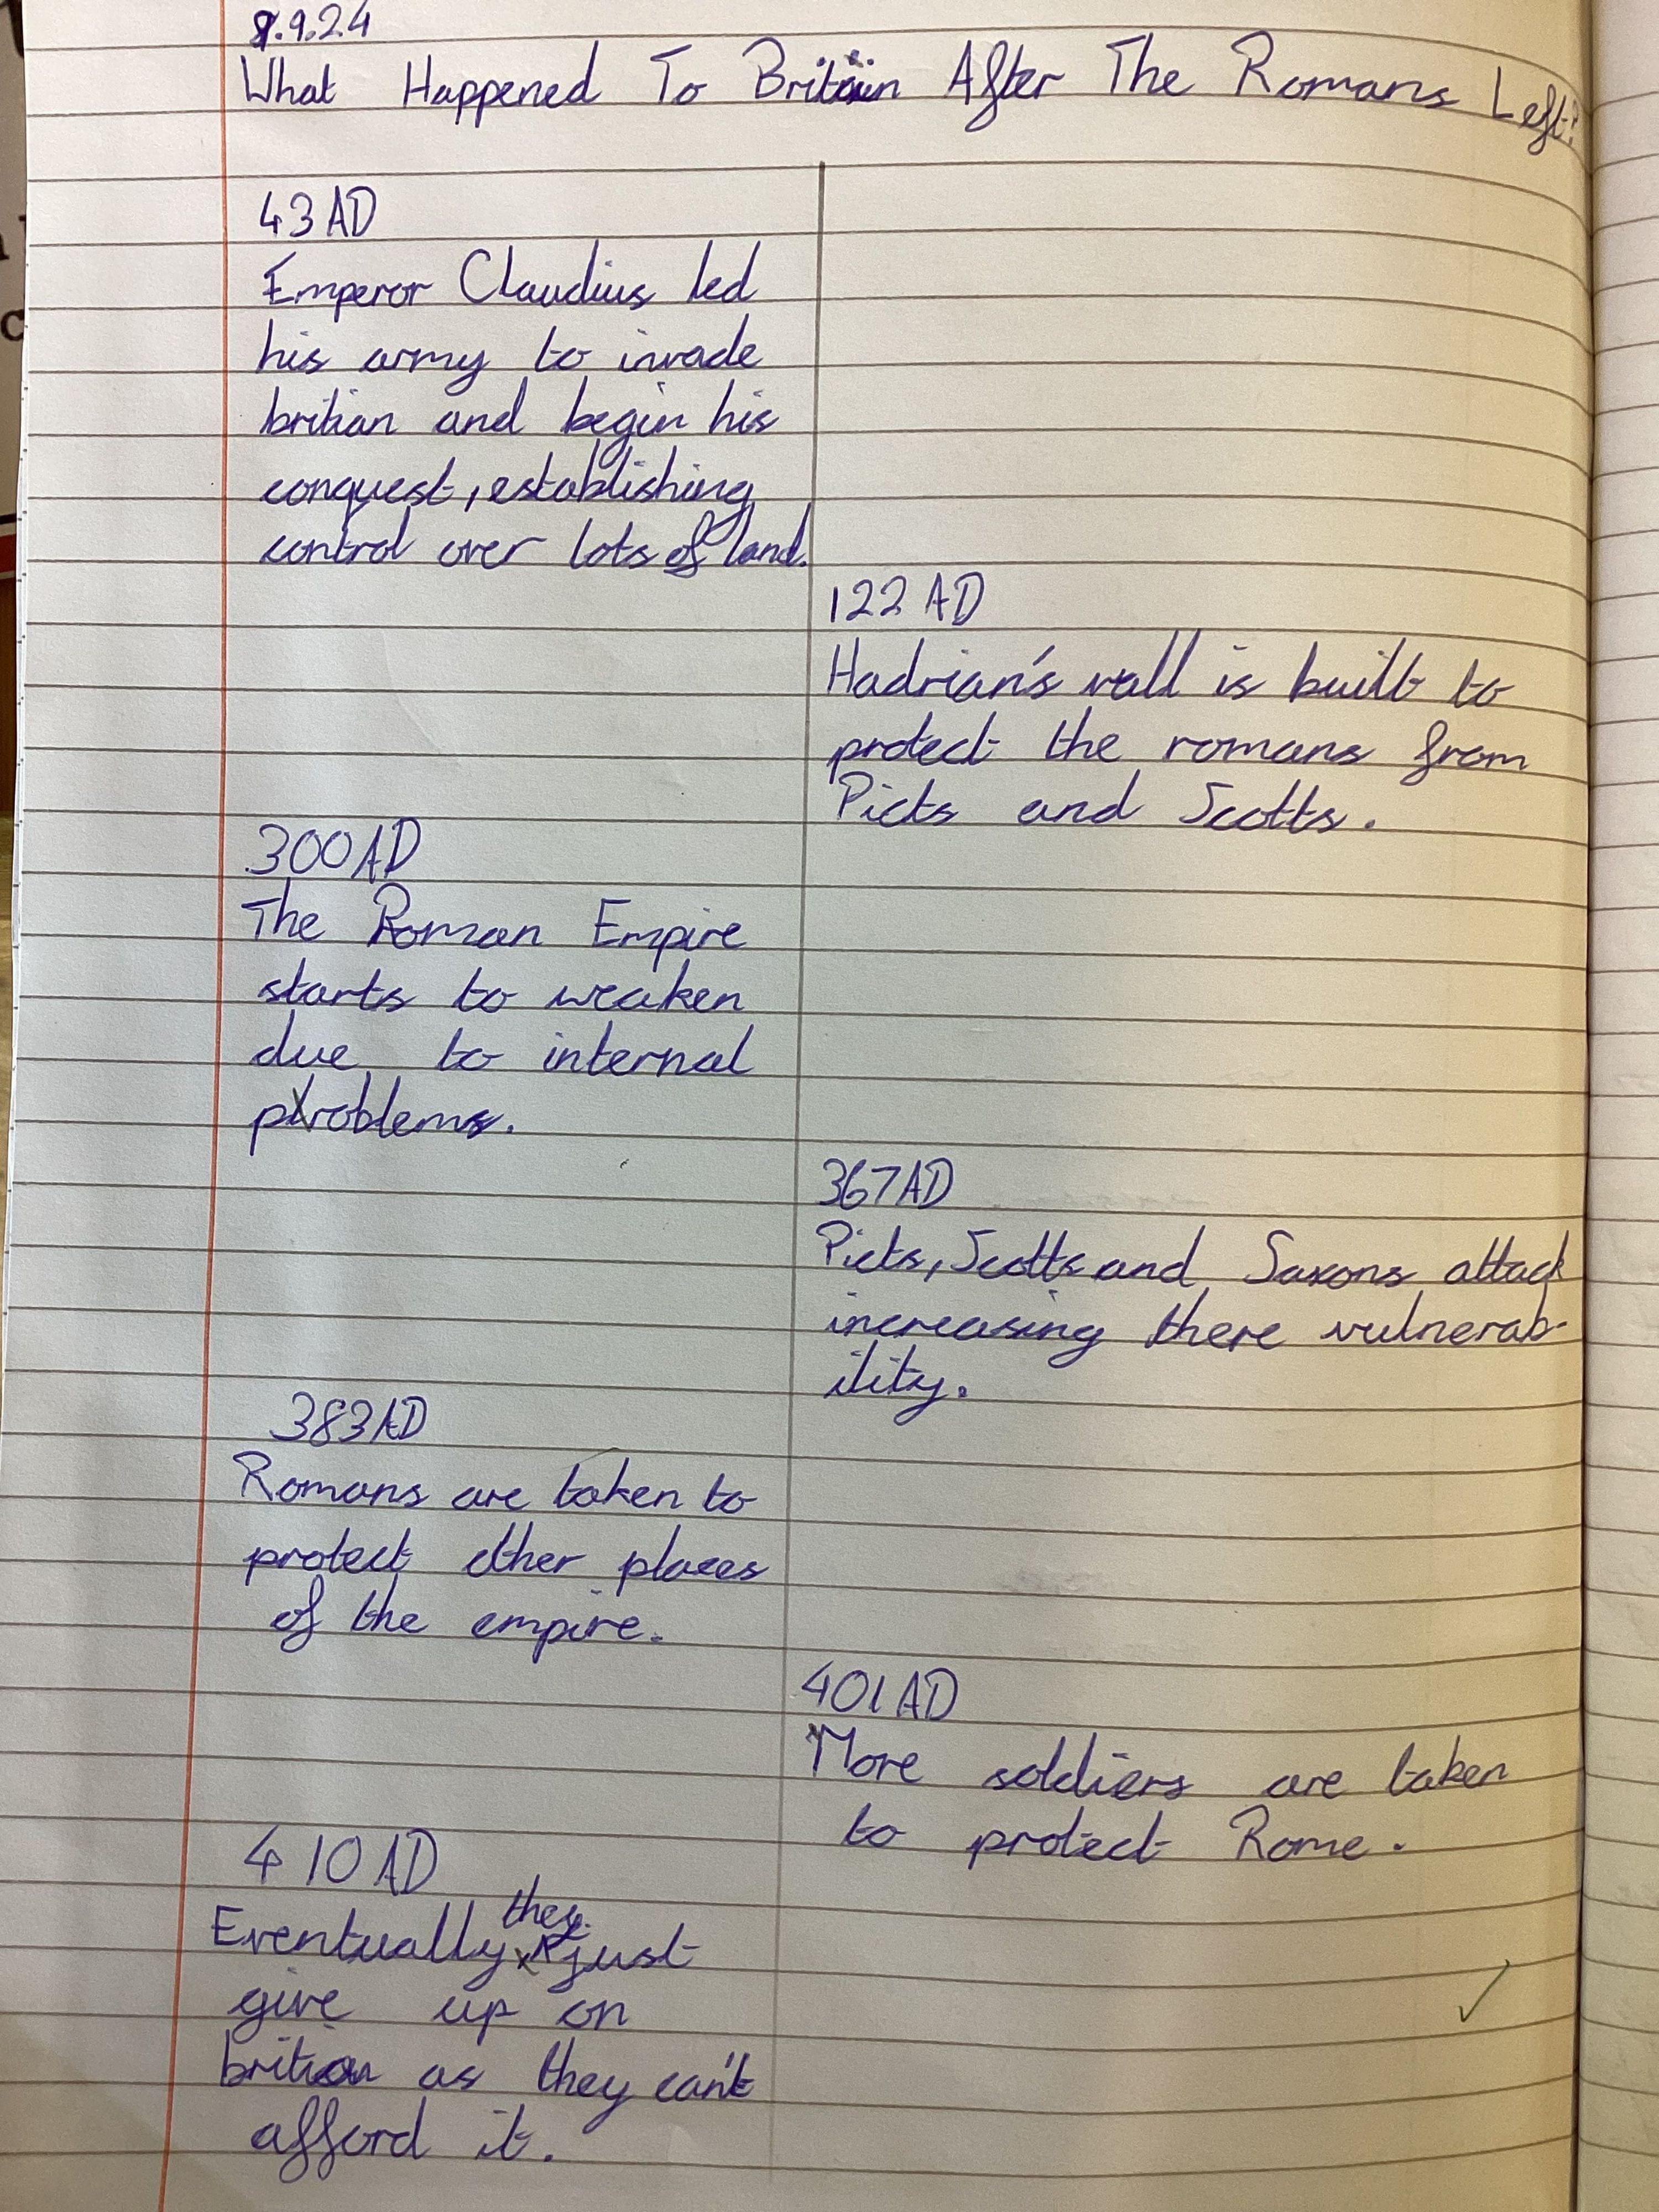 9.9.24
What Happened To Britain After The Romans Left?
43 AD
Emperor Claudius led
his army to invade
britian and begin his
conquest, establishing
control over lots of land.
122 AD
Hadrian's wall is built to
protect the romans from
Picts and Scotts.
300 AD
The Roman Empire
starts to weaken
due to internal
problems.
367 AD
Picts, Scotts and Saxons attack
increasing there vulnerab-
ility.
383 AD
Romans are taken to
protect other places
of the empire.
401 AD
More soldiers are taken
to protect Rome.
410 AD
Eventually they just
give up on
as they can't
afford it.